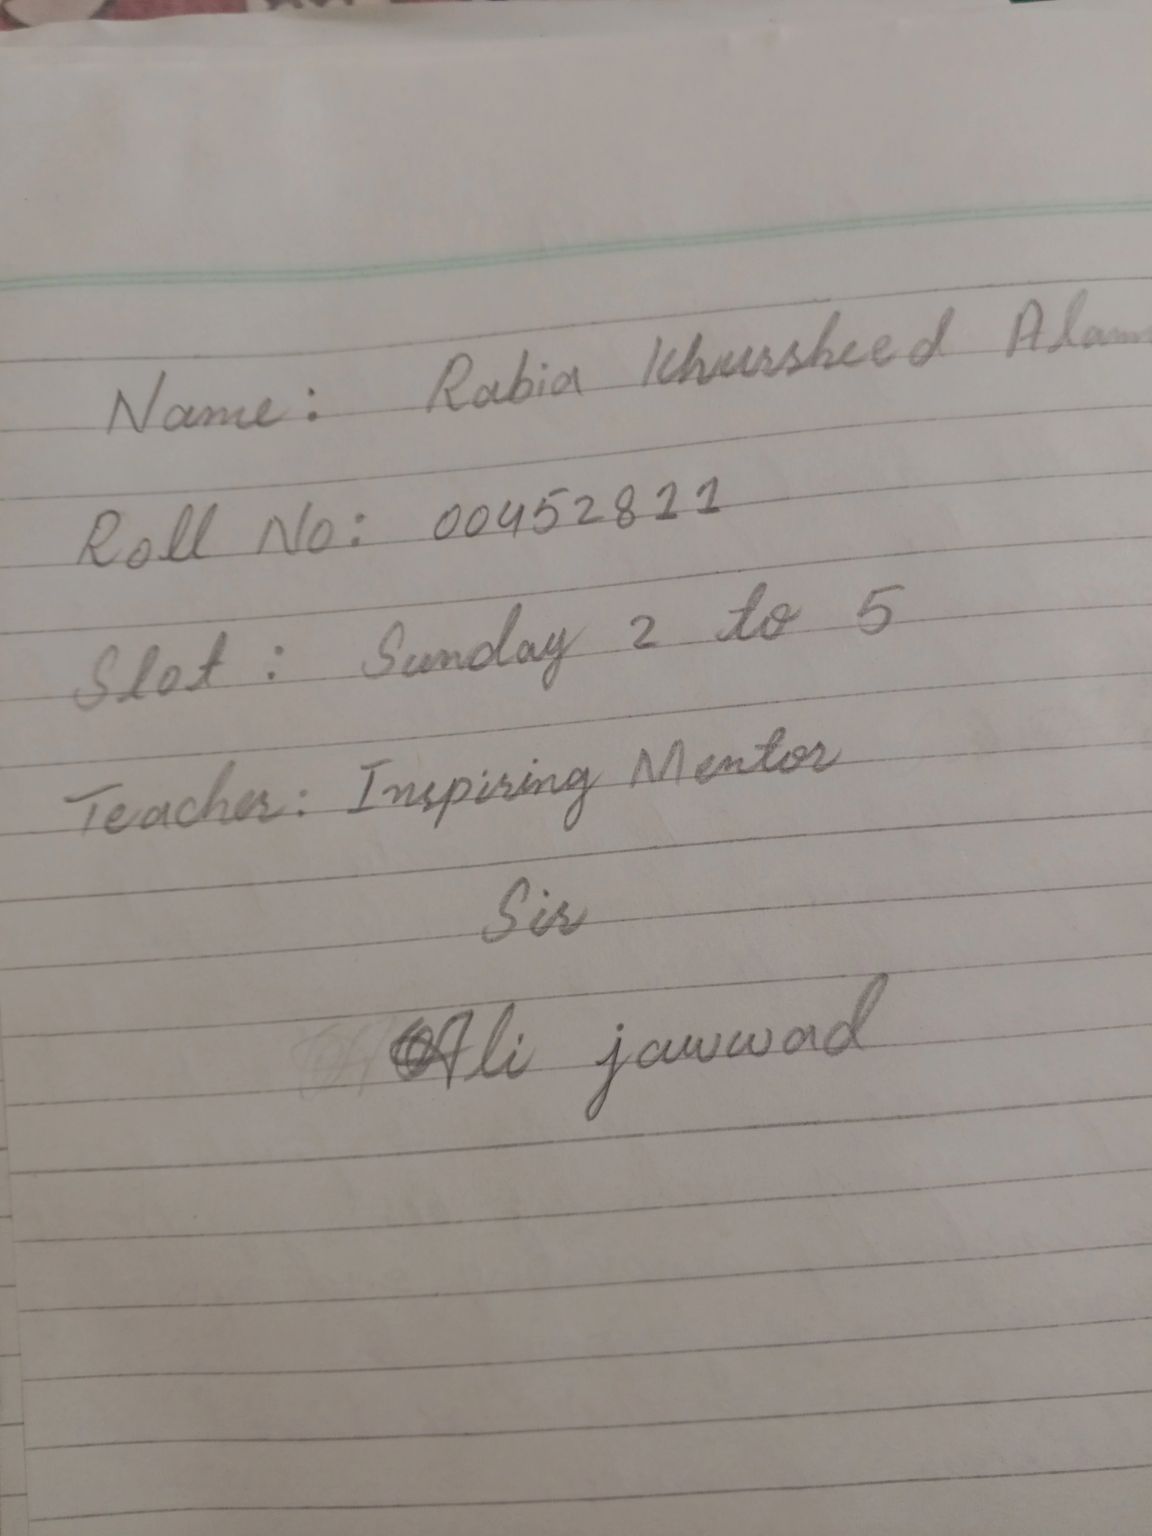 Name: Rabia Khursheed Alam
Roll No: 00452811
Slot: Sunday 2 to 5
Teacher: Inspiring Mentor
Sir
Ali jawwad